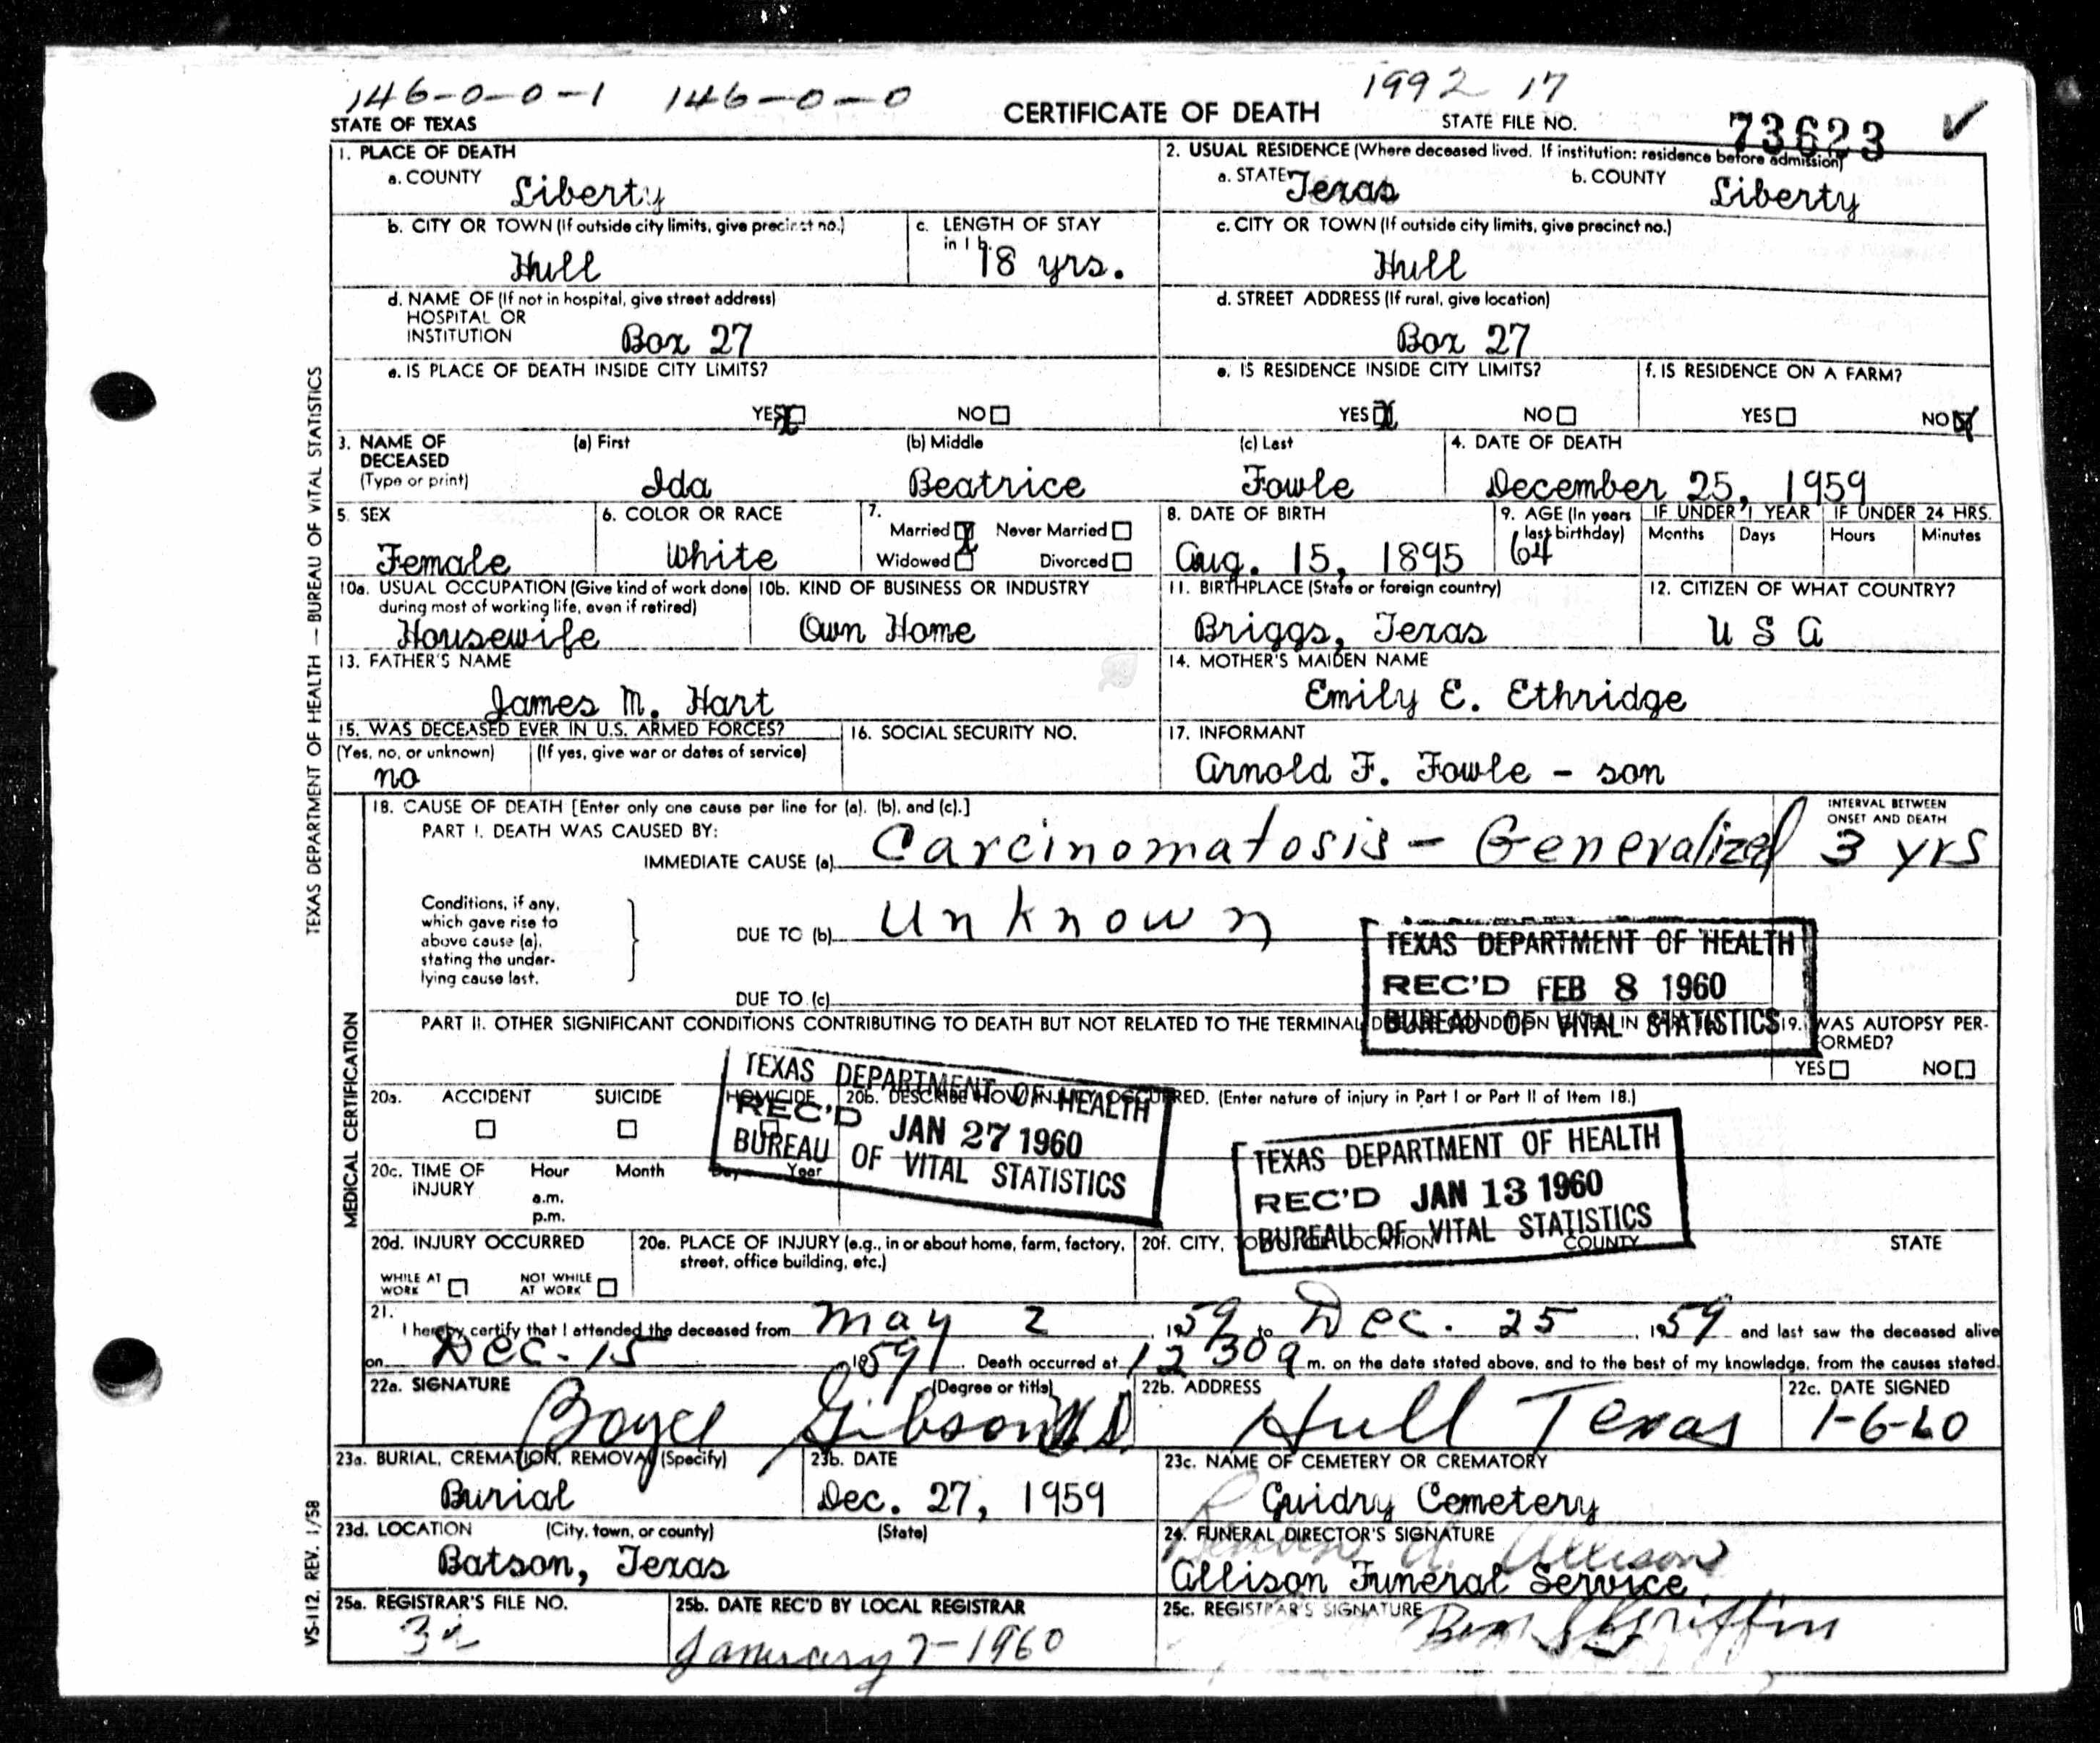 146-0-0-1 146-0-0 1992 17
STATE OF TEXAS CERTIFICATE OF DEATH STATE FILE NO. 73623 ✓
1. PLACE OF DEATH
a. COUNTY Liberty
2. USUAL RESIDENCE (Where deceased lived. If institution: residence before admission)
a. STATE Texas b. COUNTY Liberty
b. CITY OR TOWN (If outside city limits, give precinct no.) Hull
c. LENGTH OF STAY in 1 b. 18 yrs.
c. CITY OR TOWN (If outside city limits, give precinct no.) Hull
d. NAME OF (If not in hospital, give street address)
HOSPITAL OR
INSTITUTION Box 27
d. STREET ADDRESS (If rural, give location)
Box 27
e. IS PLACE OF DEATH INSIDE CITY LIMITS?
YES X NO
e. IS RESIDENCE INSIDE CITY LIMITS?
YES X NO
f. IS RESIDENCE ON A FARM?
YES NO X
3. NAME OF DECEASED (Type or print)
(a) First (b) Middle (c) Last
Ida Beatrice Fowle
4. DATE OF DEATH
December 25, 1959
5. SEX
Female
6. COLOR OR RACE
White
7. Married X Never Married
Widowed Divorced
8. DATE OF BIRTH
Aug. 15, 1895
9. AGE (In years last birthday) 64
IF UNDER 1 YEAR IF UNDER 24 HRS.
Months Days Hours Minutes
10a. USUAL OCCUPATION (Give kind of work done during most of working life, even if retired)
Housewife
10b. KIND OF BUSINESS OR INDUSTRY
Own Home
11. BIRTHPLACE (State or foreign country)
Briggs, Texas
12. CITIZEN OF WHAT COUNTRY?
U S A
13. FATHER'S NAME
James M. Hart
14. MOTHER'S MAIDEN NAME
Emily E. Ethridge
15. WAS DECEASED EVER IN U.S. ARMED FORCES?
(Yes, no, or unknown) (If yes, give war or dates of service)
no
16. SOCIAL SECURITY NO.
17. INFORMANT
Arnold F. Fowle - son
18. CAUSE OF DEATH [Enter only one cause per line for (a), (b), and (c).]
PART I. DEATH WAS CAUSED BY:
IMMEDIATE CAUSE (a) Carcinomatosis - Generalized
INTERVAL BETWEEN ONSET AND DEATH
3 yrs
Conditions, if any, which gave rise to above cause (a), stating the underlying cause last.
DUE TO (b) Unknown
DUE TO (c)
TEXAS DEPARTMENT OF HEALTH
REC'D FEB 8 1960
BUREAU OF VITAL STATISTICS
PART II. OTHER SIGNIFICANT CONDITIONS CONTRIBUTING TO DEATH BUT NOT RELATED TO THE TERMINAL
19. WAS AUTOPSY PERFORMED?
YES NO
TEXAS DEPARTMENT OF HEALTH
REC'D JAN 27 1960
BUREAU OF VITAL STATISTICS
20a. ACCIDENT SUICIDE HOMICIDE
20b. DESCRIBE HOW INJURY OCCURRED. (Enter nature of injury in Part I or Part II of Item 18.)
TEXAS DEPARTMENT OF HEALTH
REC'D JAN 13 1960
BUREAU OF VITAL STATISTICS
20c. TIME OF INJURY Hour Month Day Year
a.m.
p.m.
20d. INJURY OCCURRED
WHILE AT WORK NOT WHILE AT WORK
20e. PLACE OF INJURY (e.g., in or about home, farm, factory, street, office building, etc.)
20f. CITY, TOWN, OR LOCATION COUNTY STATE
21.
I hereby certify that I attended the deceased from May 2, 1959 to Dec. 25, 1959 and last saw the deceased alive
on Dec. 15 1959. Death occurred at 12 30 a m. on the date stated above, and to the best of my knowledge, from the causes stated.
22a. SIGNATURE (Degree or title)
Boyce Gibson M.D.
22b. ADDRESS
Hull Texas
22c. DATE SIGNED
1-6-60
23a. BURIAL, CREMATION, REMOVAL (Specify)
Burial
23b. DATE
Dec. 27, 1959
23c. NAME OF CEMETERY OR CREMATORY
Guidry Cemetery
23d. LOCATION (City, town, or county) (State)
Batson, Texas
24. FUNERAL DIRECTOR'S SIGNATURE
Allison
Allison Funeral Service
25a. REGISTRAR'S FILE NO.
25b. DATE REC'D BY LOCAL REGISTRAR
January 7-1960
25c. REGISTRAR'S SIGNATURE
Griffin
TEXAS DEPARTMENT OF HEALTH — BUREAU OF VITAL STATISTICS
MEDICAL CERTIFICATION
VS-112, REV. 1/58